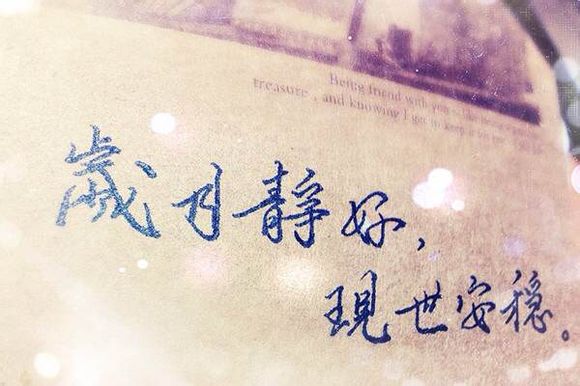 Being friend with you
treasure, and knowing I got to keep it
歲月静好,
現世安穩。